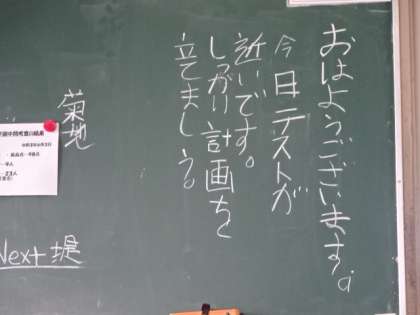 おはようございます。
今日テストが
近いです。
しっかり計画を
立てましょう。
菊地
Next 堤